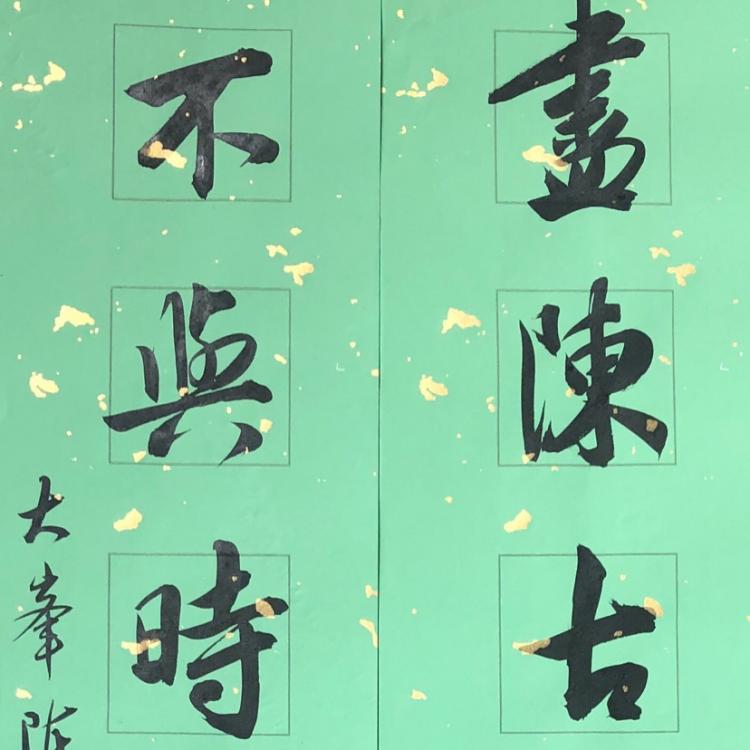 盡陳古
不與時
大峯陈